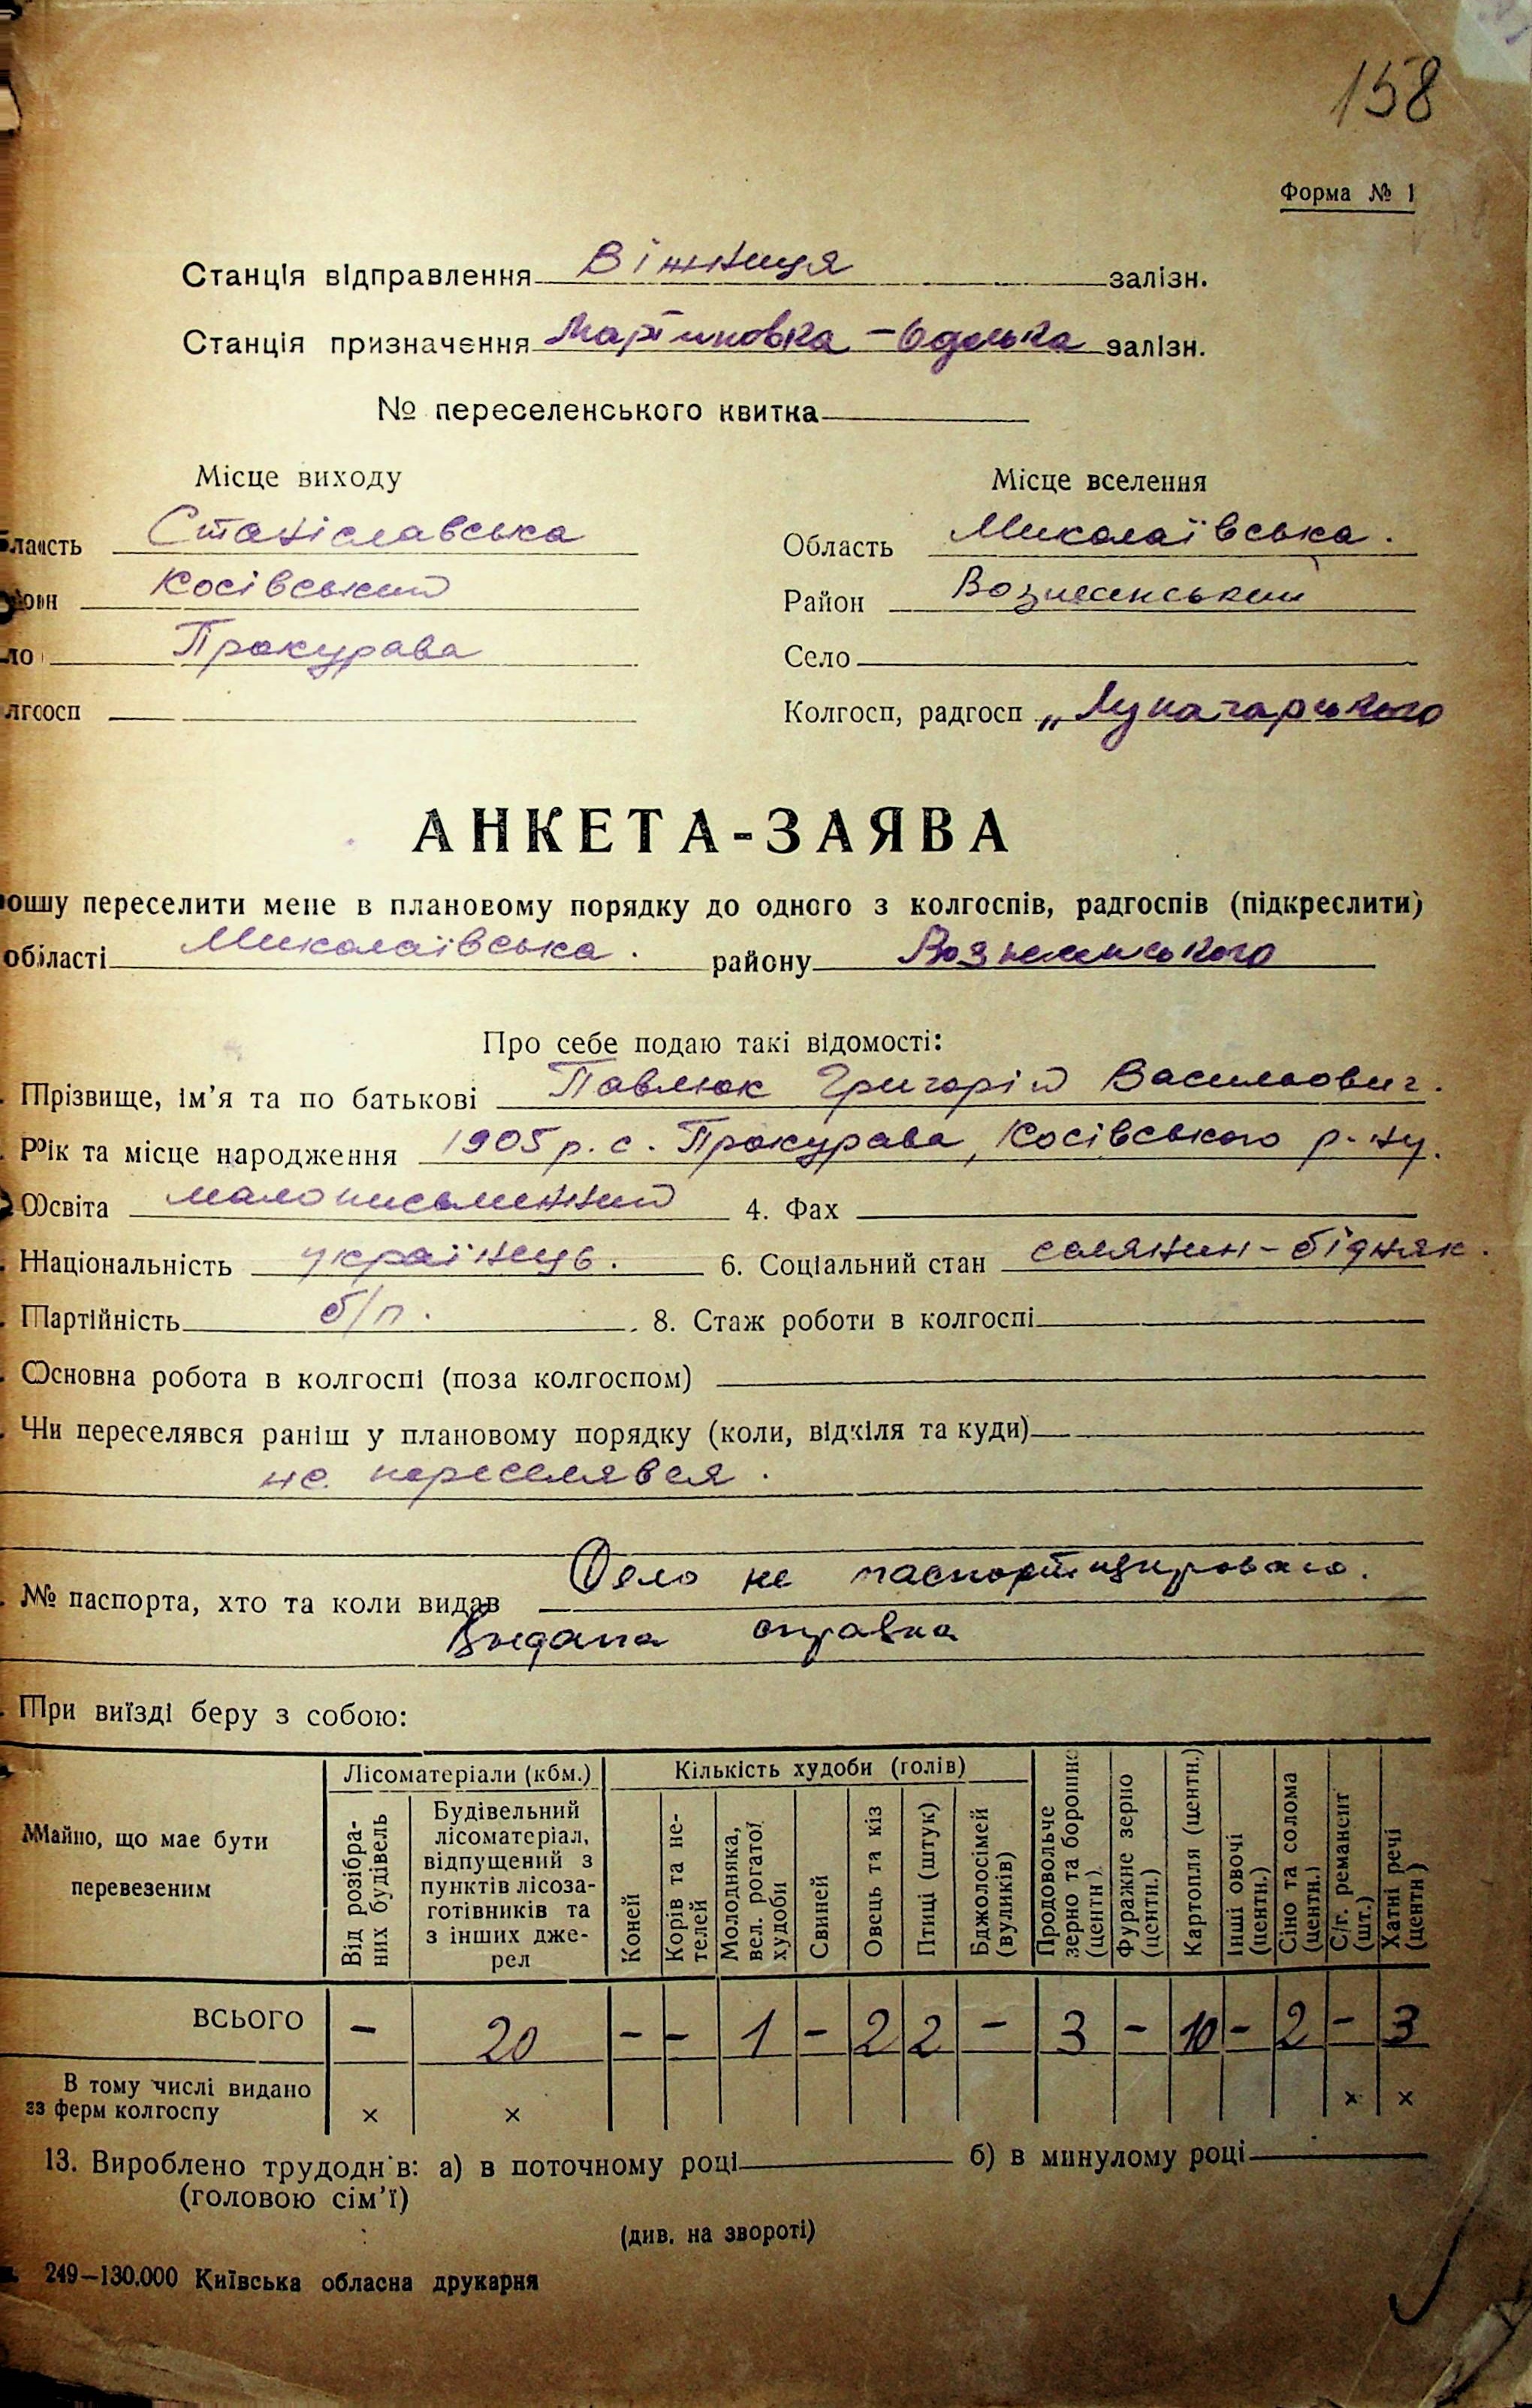 158
Форма № 1
Станція відправлення Віжниця залізн.
Станція призначення Мартиновка - Одеська залізн.
№ переселенського квитка
Місце виходу Місце вселення
бласть Станіславська Область Миколаївська.
йон Косівський Район Вознесенський
ло Прокурава Село
лгосп Колгосп, радгосп „Луначарського
АНКЕТА-ЗАЯВА
ошу переселити мене в плановому порядку до одного з колгоспів, радгоспів (підкреслити)
області Миколаївська. району Вознесенського
Про себе подаю такі відомості:
Прізвище, ім’я та по батькові Павлюк Григорій Васильович.
Рік та місце народження 1905 р. с. Прокурава, Косівського р-ну.
Освіта малописьменний 4. Фах
Національність українець. 6. Соціальний стан селянин-бідняк.
Партійність б/п. 8. Стаж роботи в колгоспі
Основна робота в колгоспі (поза колгоспом)
Чи переселявся раніш у плановому порядку (коли, відкіля та куди)
не переселявся.
№ паспорта, хто та коли видав Село не паспортизировано.
Видана справка
При виїзді беру з собою:
Майно, що має бути перевезеним
Лісоматеріали (кбм.) Кількість худоби (голів)
Від розібра-
них будівель
Будівельний
лісоматеріал,
відпущений з
пунктів лісоза-
готівників та
з інших дже-
рел
Коней
Корів та не-
телей
Молодняка,
вел. рогатої
худоби
Свиней
Овець та кіз
Птиці (штук)
Бджолосімей
(вуликів)
Продовольче
зерно та борошно
(центн.)
Фуражне зерно
(центн.)
Картопля (центн.)
Інші овочі
(центн.)
Сіно та солома
(центн.)
С/г. реманент
(шт.)
Хатні речі
(центн)
ВСЬОГО - 20 - - 1 - 2 2 - 3 - 10 - 2 - 3
В тому числі видано
з ферм колгоспу × × × ×
13. Вироблено трудоднів: а) в поточному році б) в минулому році
(головою сім’ї)
(див. на звороті)
249—130.000 Київська обласна друкарня